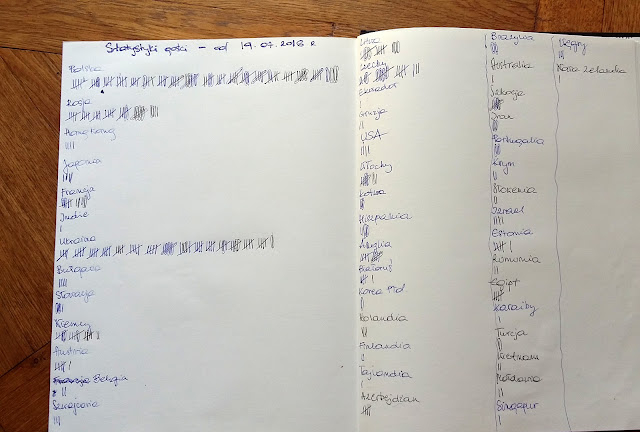 Statystyki gości - od 19.07.2018 r
Polska
Rosja
Hong Kong
Japonia
Francja
Indie
Ukraina
Bułgaria
Słowacja
Niemcy
Austria
Belgia
Szwajcaria
Litwa
Czechy
Ekwador
Gruzja
USA
Włochy
Łotwa
Hiszpania
Anglia
Białoruś
Korea Płd.
Holandia
Finlandia
Tajlandia
Azerbejdżan
Brazylia
Australia
Szkocja
Iran
Portugalia
Krym
Słowenia
Izrael
Estonia
Rumunia
Egipt
Karaiby
Turcja
Wietnam
Mołdawia
Singapur
Węgry
Nowa Zelandia